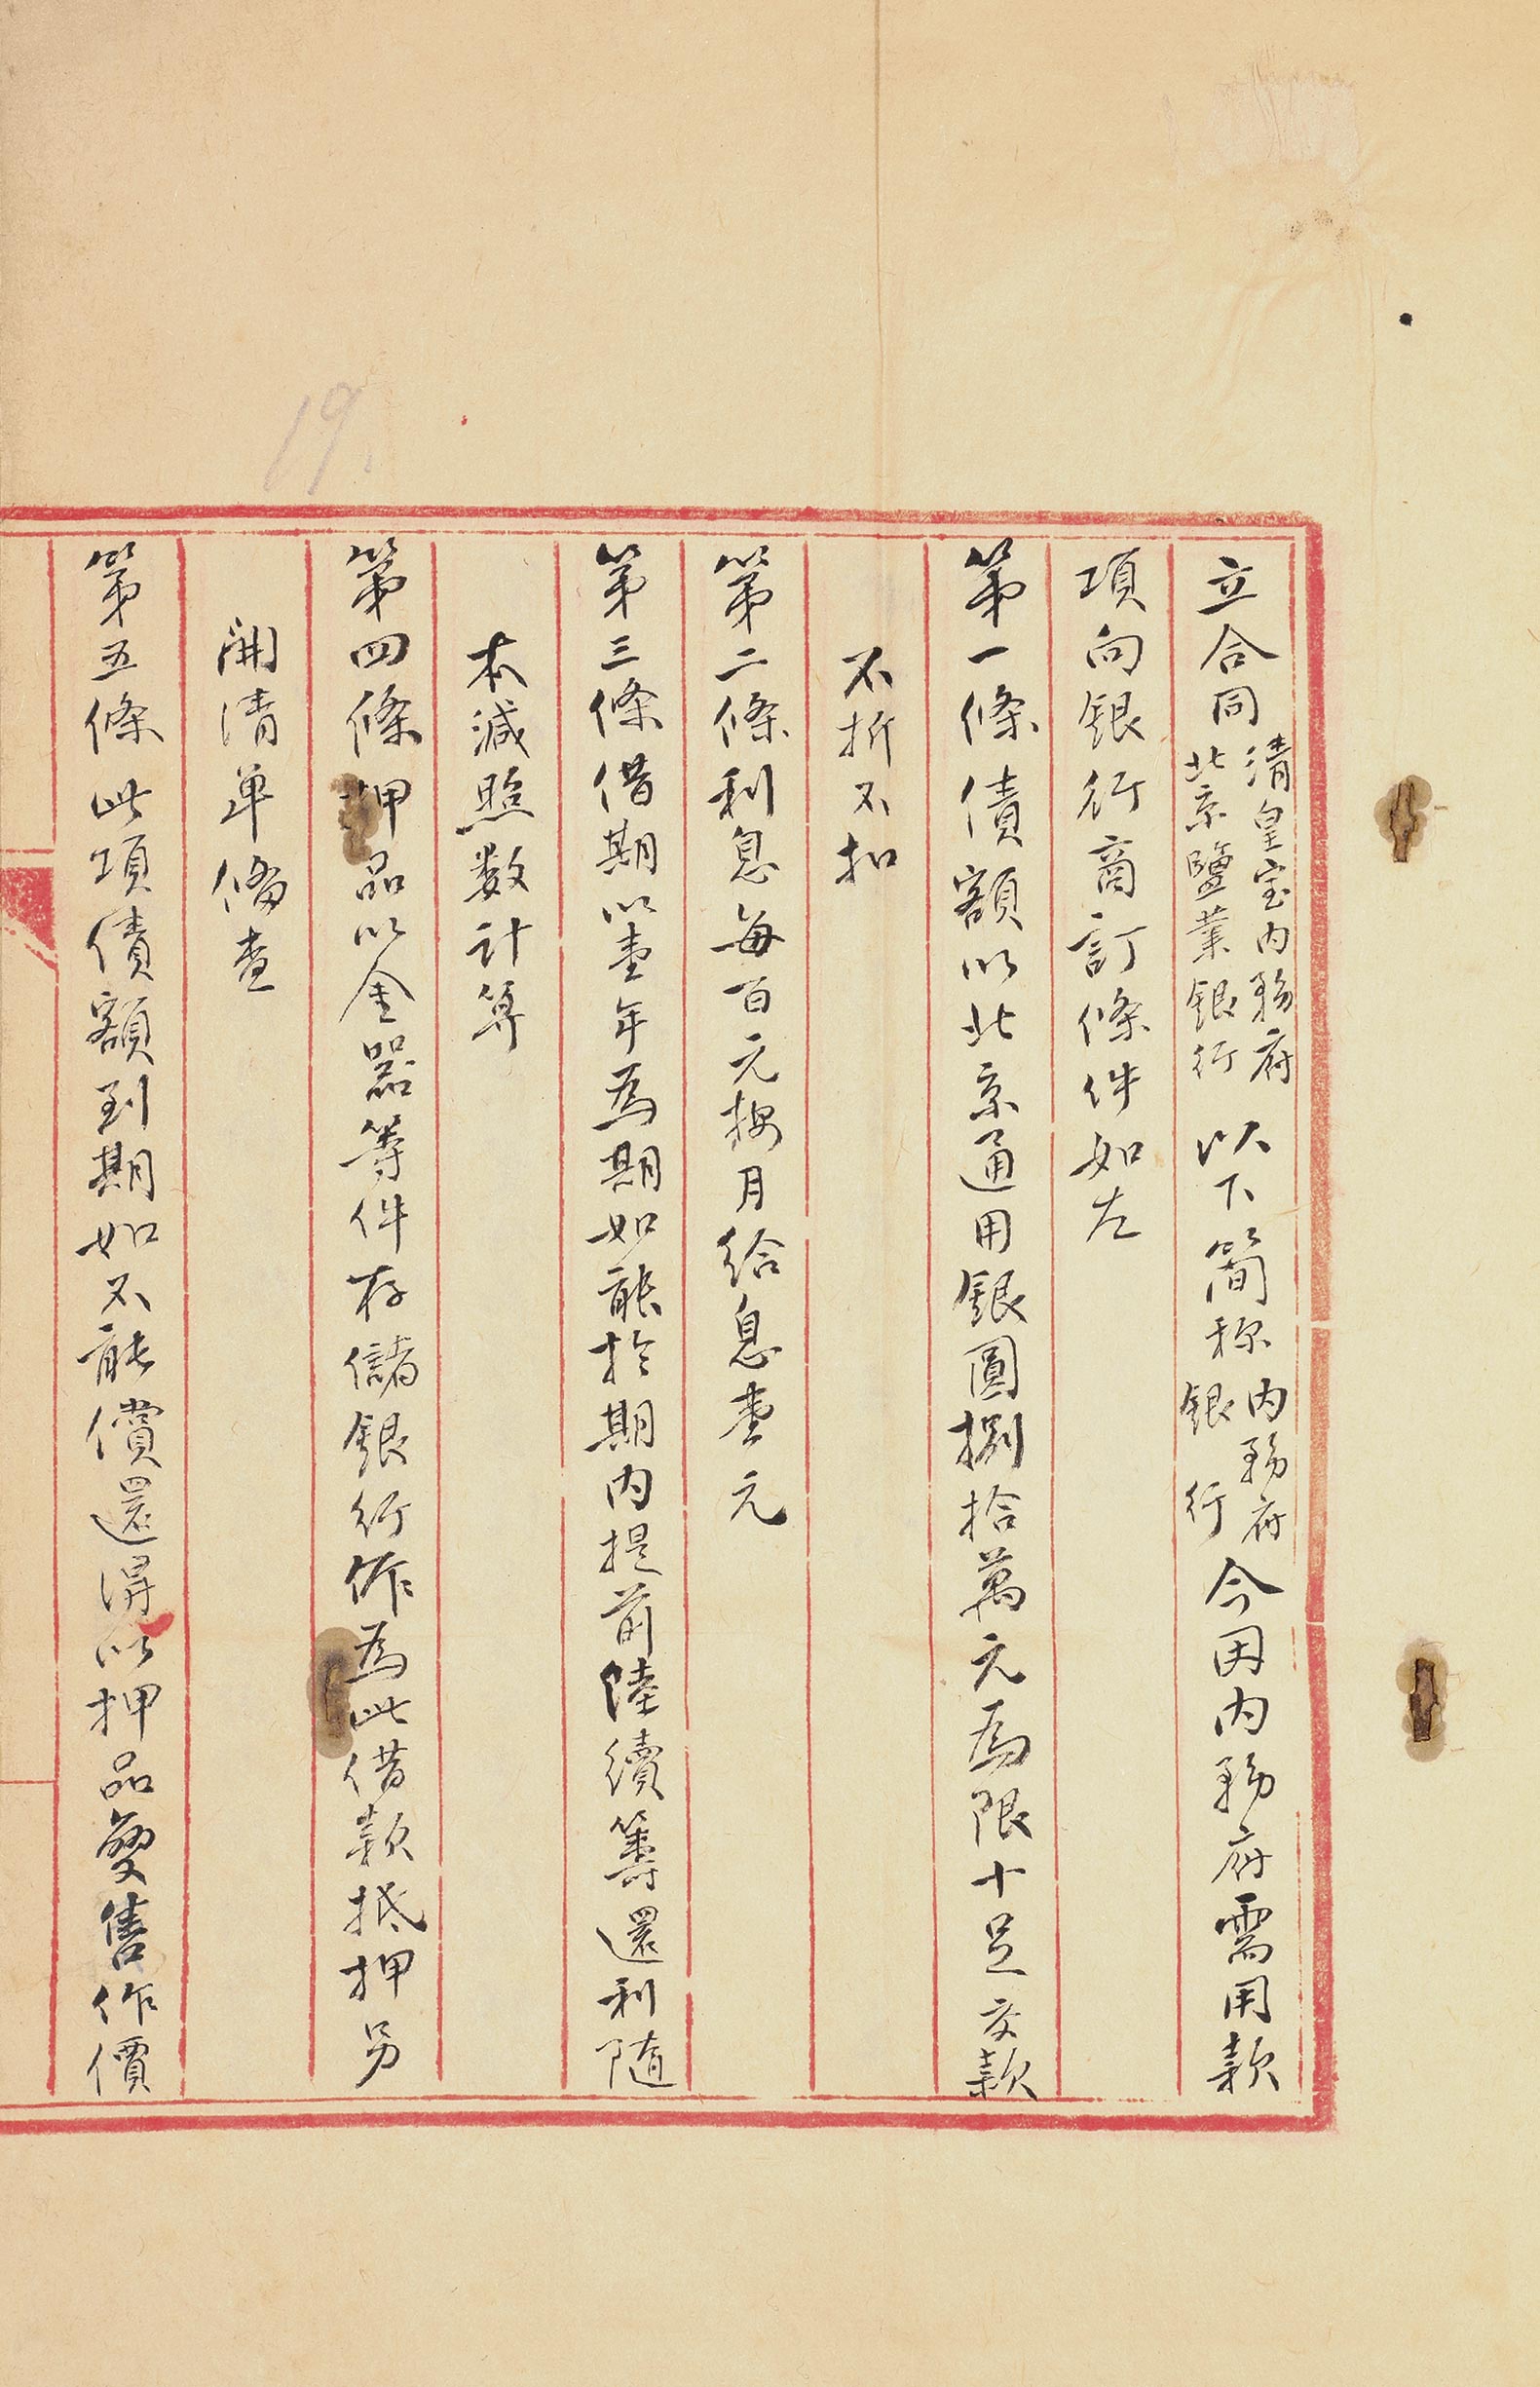 立合同清皇室內務府北京鹽業銀行以下简称內務府銀行今因內務府需用款
項向銀行商訂條件如左
第一條債額以北京通用銀圓捌拾萬元為限十足交款
不折不扣
第二條利息每百元按月給息壹元
第三條借期以壹年為期如能於期內提前陸續籌還利隨
本減照数計算
第四條押品以金器等件存儲銀行作為此借款抵押另
開清单俻查
第五條此項債額到期如不能償還得以押品變售作價
19